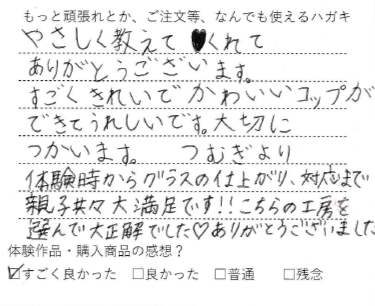 もっと頑張れとか、ご注文等、なんでも使えるハガキ
やさしく教えて♥くれて
ありがとうございます。
すごくきれいでかわいいコップが
できてうれしいです。大切に
つかいます。 つむぎより
体験時からグラスの仕上がり、対応まで
親子共々大満足です!!こちらの工房を
選んで大正解でした♡ありがとうございました
体験作品・購入商品の感想？
☑すごく良かった □良かった □普通 □残念